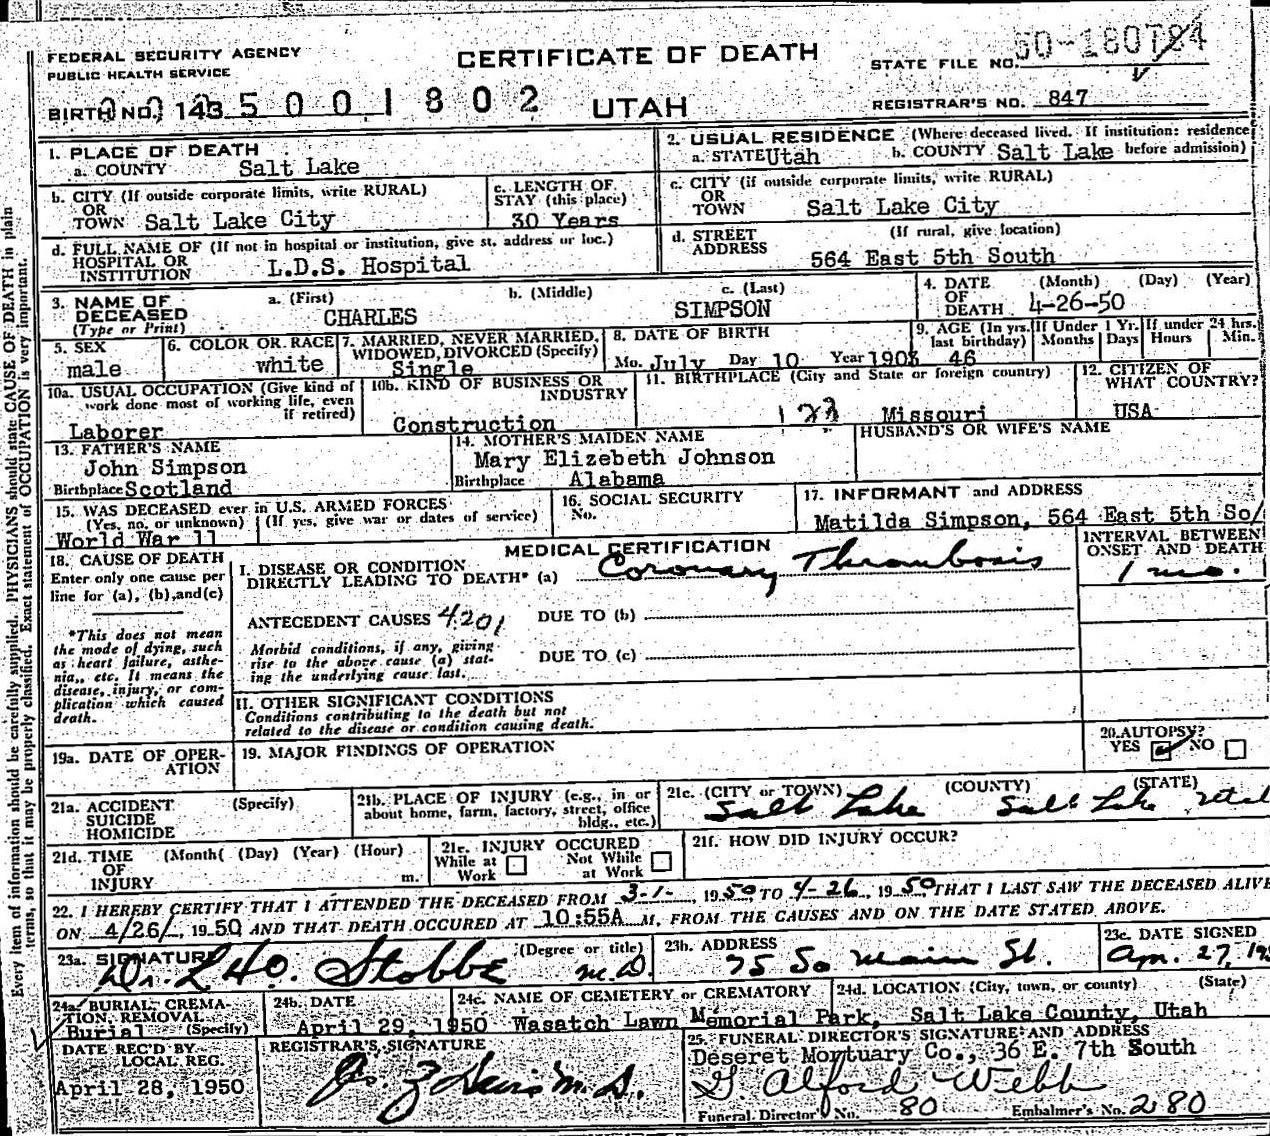 FEDERAL SECURITY AGENCY
PUBLIC HEALTH SERVICE
CERTIFICATE OF DEATH
STATE FILE NO.
BIRTH NO. 143
UTAH
REGISTRAR'S NO. 847
1. PLACE OF DEATH
a. COUNTY Salt Lake
2. USUAL RESIDENCE (Where deceased lived. If institution: residence before admission)
a. STATE Utah b. COUNTY Salt Lake
b. CITY (If outside corporate limits, write RURAL)
OR
TOWN Salt Lake City
c. LENGTH OF
STAY (this place)
30 Years
c. CITY (if outside corporate limits, write RURAL)
OR
TOWN Salt Lake City
d. FULL NAME OF (If not in hospital or institution, give st. address or loc.)
HOSPITAL OR
INSTITUTION L.D.S. Hospital
d. STREET
ADDRESS
(If rural, give location)
564 East 5th South
3. NAME OF
DECEASED
(Type or Print)
a. (First) b. (Middle) c. (Last)
CHARLES SIMPSON
4. DATE
OF
DEATH
(Month) (Day) (Year)
4-26-50
5. SEX
male
6. COLOR OR RACE
white
7. MARRIED, NEVER MARRIED,
WIDOWED, DIVORCED (Specify)
Single
8. DATE OF BIRTH
Mo. July Day 10 Year
9. AGE (In yrs. last birthday)
46
If Under 1 Yr.
Months Days
If under 24 hrs.
Hours Min.
10a. USUAL OCCUPATION (Give kind of
work done most of working life, even
if retired)
Laborer
10b. KIND OF BUSINESS OR
INDUSTRY
Construction
11. BIRTHPLACE (City and State or foreign country)
Missouri
12. CITIZEN OF
WHAT COUNTRY?
USA
13. FATHER'S NAME
John Simpson
Birthplace Scotland
14. MOTHER'S MAIDEN NAME
Mary Elizebeth Johnson
Birthplace Alabama
HUSBAND'S OR WIFE'S NAME
15. WAS DECEASED ever in U.S. ARMED FORCES
(Yes, no, or unknown) (If yes, give war or dates of service)
World War 11
16. SOCIAL SECURITY
No.
17. INFORMANT and ADDRESS
Matilda Simpson, 564 East 5th So/
18. CAUSE OF DEATH
Enter only one cause per
line for (a), (b), and (c)
*This does not mean
the mode of dying, such
as heart failure, asthe-
nia, etc. It means the
disease, injury, or com-
plication which caused
death.
MEDICAL CERTIFICATION
I. DISEASE OR CONDITION
DIRECTLY LEADING TO DEATH* (a) Coronary Thrombosis
INTERVAL BETWEEN
ONSET AND DEATH
1 mo.
ANTECEDENT CAUSES 4201 DUE TO (b)
Morbid conditions, if any, giving
rise to the above cause (a) stat-
ing the underlying cause last.
DUE TO (c)
II. OTHER SIGNIFICANT CONDITIONS
Conditions contributing to the death but not
related to the disease or condition causing death.
19a. DATE OF OPER-
ATION
19. MAJOR FINDINGS OF OPERATION
20. AUTOPSY?
YES NO
21a. ACCIDENT (Specify)
SUICIDE
HOMICIDE
21b. PLACE OF INJURY (e.g., in or
about home, farm, factory, street, office
bldg., etc.)
21c. (CITY or TOWN) (COUNTY) (STATE)
Salt Lake Salt Lake Utah
21d. TIME (Month( (Day) (Year) (Hour)
OF
INJURY m.
21e. INJURY OCCURED
While at Work Not While at Work
21f. HOW DID INJURY OCCUR?
22. I HEREBY CERTIFY THAT I ATTENDED THE DECEASED FROM 3-1-, 1950 TO 4-26, 1950 THAT I LAST SAW THE DECEASED ALIVE
ON 4/26/, 1950 AND THAT DEATH OCCURED AT 10:55A M, FROM THE CAUSES AND ON THE DATE STATED ABOVE.
23a. SIGNATURE (Degree or title)
Stobbe M.D.
23b. ADDRESS
75 So Main St.
23c. DATE SIGNED
Apr. 27, 195
24a. BURIAL, CREMA-
TION, REMOVAL
Burial (Specify)
24b. DATE
April 29, 1950
24c. NAME OF CEMETERY or CREMATORY
Wasatch Lawn Memorial Park,
24d. LOCATION (City, town, or county) (State)
Salt Lake County, Utah
DATE REC'D BY
LOCAL REG.
April 28, 1950
REGISTRAR'S SIGNATURE
M.D.
25. FUNERAL DIRECTOR'S SIGNATURE AND ADDRESS
Deseret Mortuary Co., 36 E. 7th South
G. Alford Webb
Funeral Director's No. 80 Embalmer's No. 280
Every item of information should be carefully supplied. PHYSICIANS should state CAUSE OF DEATH in plain
terms, so that it may be properly classified. Exact statement of OCCUPATION is very important.